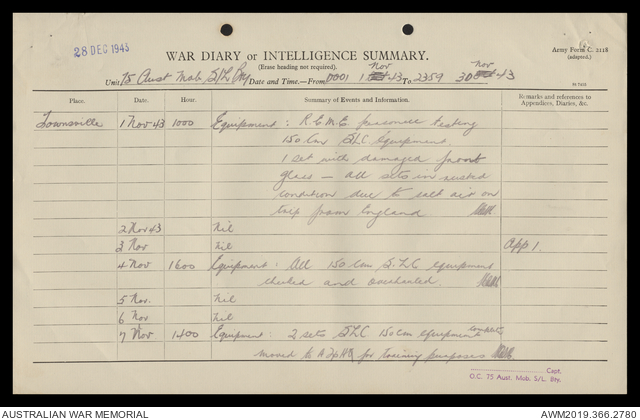 28 DEC 1943
WAR DIARY or INTELLIGENCE SUMMARY.
(Erase heading not required).
Army Form C. 2118
(adapted.)
Unit 75 Aust Mob S/L Bty Date and Time.—From 0001 1 Nov 43 To 2359 30 Nov 43
Place. Date. Hour. Summary of Events and Information. Remarks and references to Appendices, Diaries, &c.
Townsville 1 Nov 43 1000 Equipment: R.E.M.E personnel testing
150 Cm SLC equipment
1 set with damaged front
glass — all sets in rusted
condition due to salt air on
trip from England
2 Nov 43 Nil
3 Nov Nil App 1.
4 Nov 1600 Equipment: All 150 Cm S.L.C equipment
checked and overhauled.
5 Nov. Nil
6 Nov Nil
7 Nov 1400 Equipment: 2 sets SLC 150 Cm equipment complete
moved to A Tp HQ for training purposes
Capt.
O.C. 75 Aust. Mob. S/L. Bty.
AUSTRALIAN WAR MEMORIAL
AWM2019.366.2780